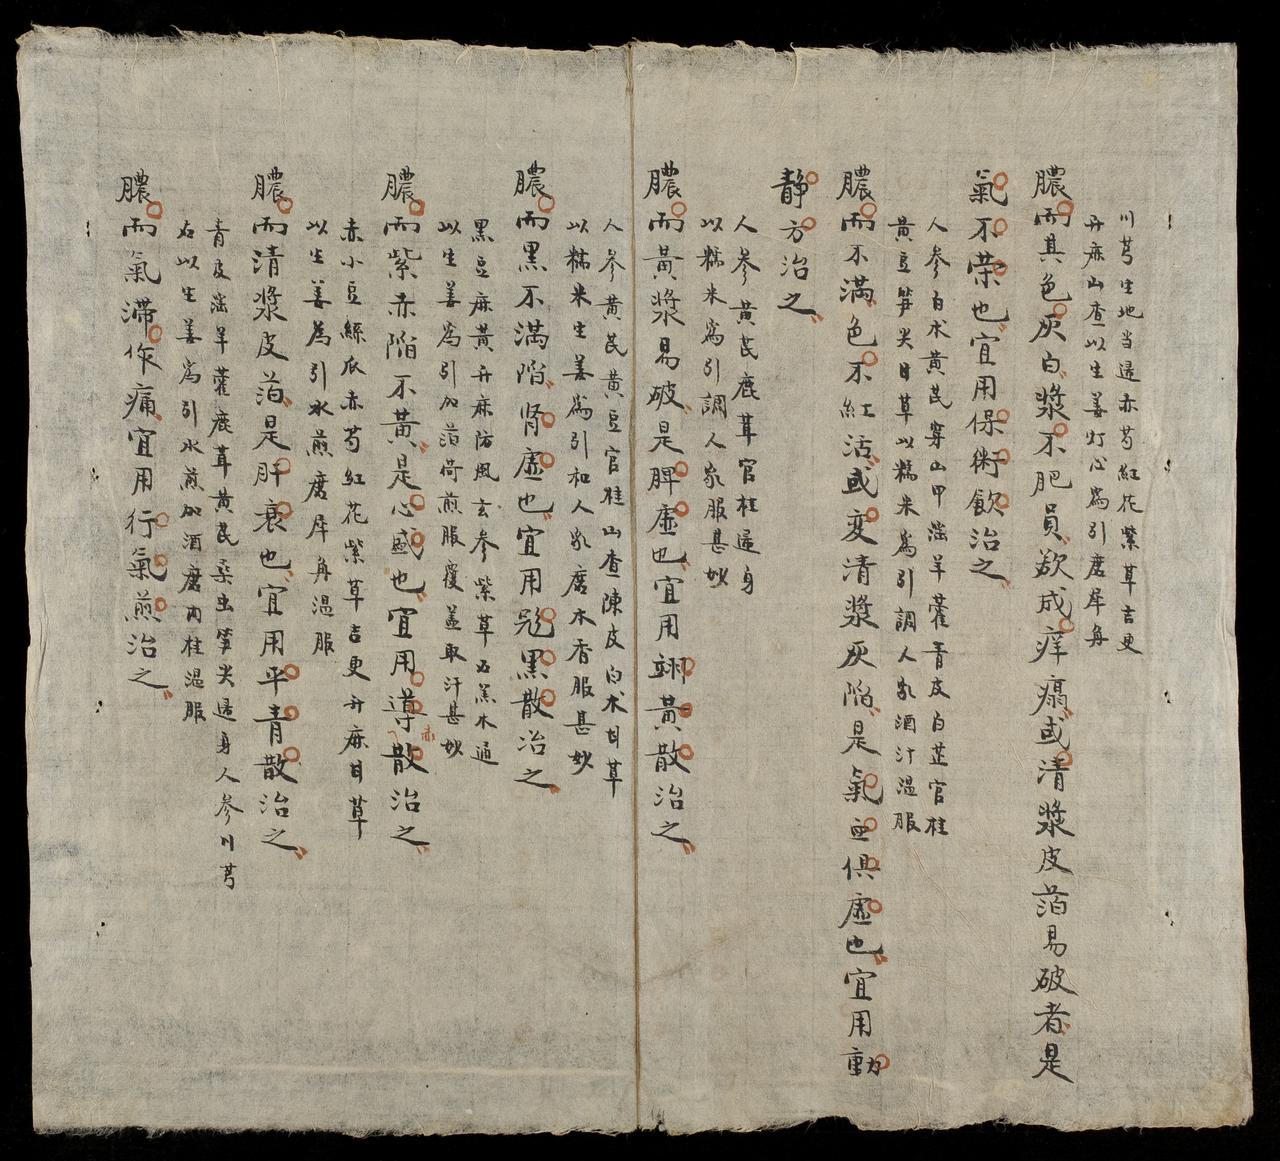 川芎生地当归赤芍紅花紫草吉更
升麻山查以生姜灯心為引磨犀角
膿而其色灰白漿不肥員欲成痒塌或清漿皮萡易破者是
氣不榮也宜用保術飲治之
人参白术黄芪穿山甲滛羊藿青皮白芷官桂
黃豆笋尖甘草以糯米為引調人乳酒汁温服
膿而不滿色不紅活或变清漿灰陷是氣血俱虛也宜用動
靜方治之
人参黄芪鹿茸官桂归身
以糯米為引調人乳服甚妙
膿而黃漿易破是脾虛也宜用翊黃散治之
人参黄芪黄豆官桂山查陳皮白术甘草
以糯米生姜為引和人乳磨木香服甚妙
膿而黑不滿陷肾虛也宜用黑散治之
黑豆麻黃升麻防風玄参紫草木通
以生姜為引加萡荷煎服覆盖取汗甚妙
膿而紫赤陷不黃是心盛也宜用導赤散治之
赤小豆絲瓜赤芍紅花紫草吉更升麻甘草
以生姜為引水煎磨犀角温服
膿而清漿皮萡是肝衰也宜用平青散治之
青皮滛羊藿鹿茸黄芪桑虫笋尖归身人参川芎
右以生姜為引水煎加酒磨肉桂温服
膿而氣滯作痛宜用行氣煎治之